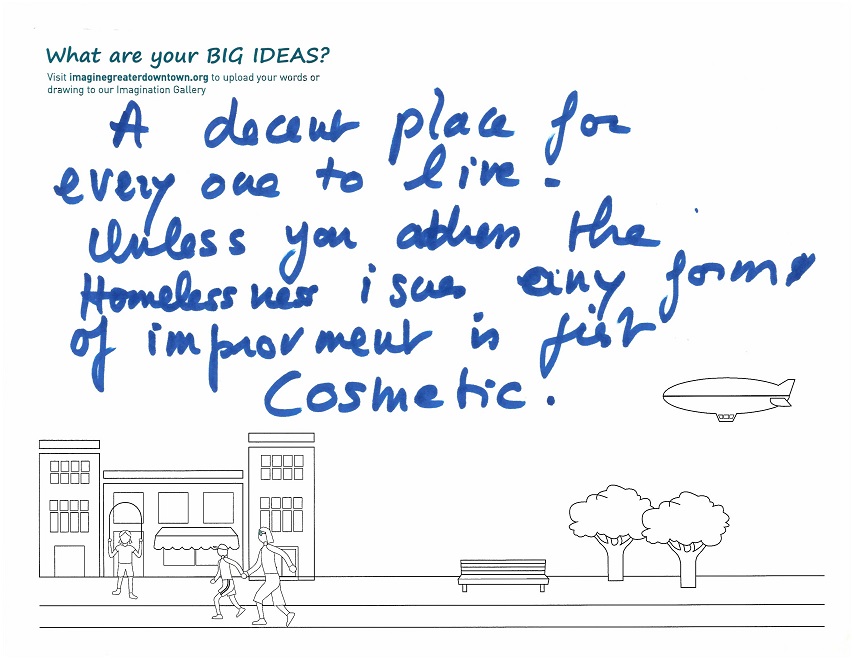 What are your BIG IDEAS?
Visit imaginegreaterdowntown.org to upload your words or
drawing to our Imagination Gallery
A decent place for
every one to live.
Unless you address the
Homelessness isues any form
of improvment is
Cosmetic.